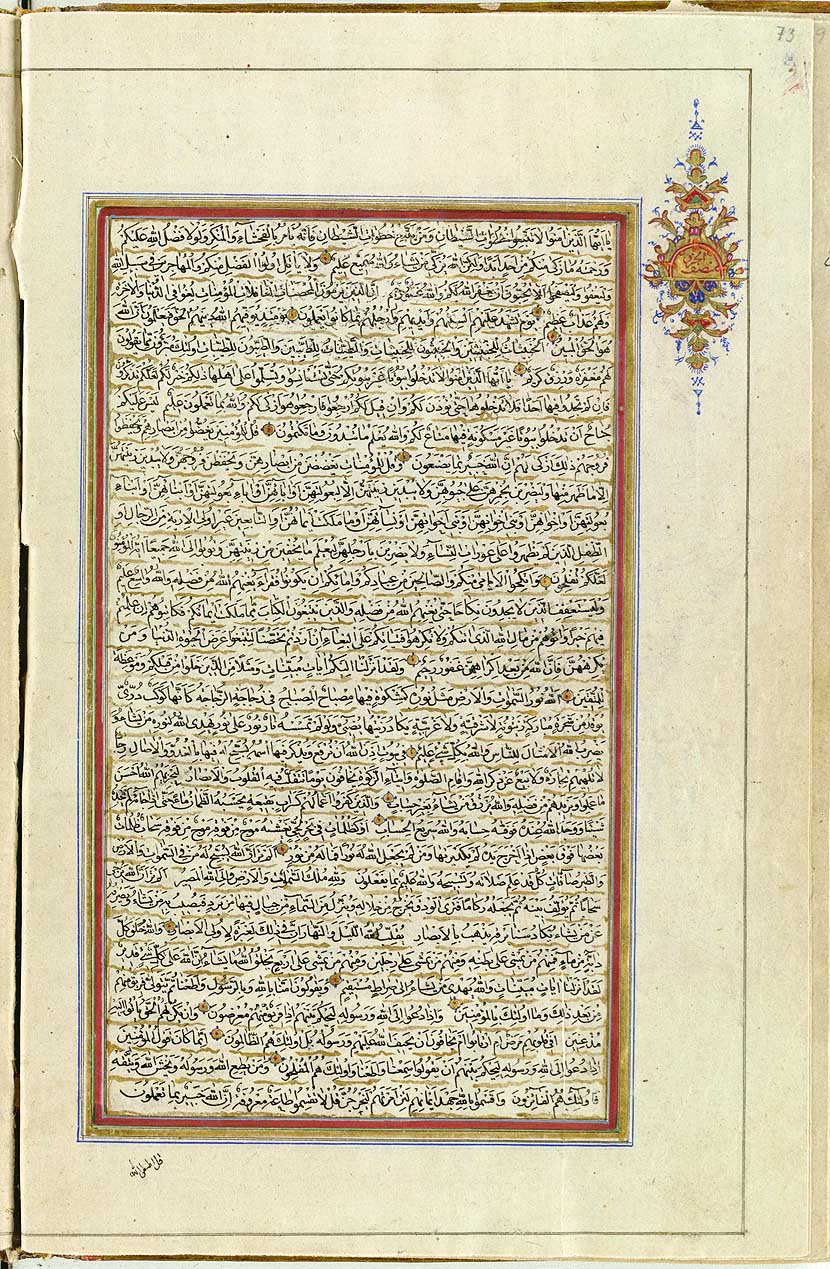 73
نصف الجزء
يا ايها الذين امنوا لا تتبعوا خطوات الشيطان ومن يتبع خطوات الشيطان فانه يامر بالفحشاء والمنكر ولولا فضل الله عليكم
ورحمته ما زكى منكم من احد ابدا ولكن الله يزكى من يشاء والله سميع عليم ولا ياتل اولوا الفضل منكم والمهاجرين فى سبيل الله
وليعفوا وليصفحوا الا تحبون ان يغفر الله لكم والله غفور رحيم ان الذين يرمون المحصنات الغافلات المؤمنات لعنوا فى الدنيا والاخرة
ولهم عذاب عظيم يوم تشهد عليهم السنتهم وايديهم وارجلهم بما كانوا يعملون يومئذ يوفيهم الله دينهم الحق ويعلمون ان الله
هو الحق المبين الخبيثات للخبيثين والخبيثون للخبيثات والطيبات للطيبين والطيبون للطيبات اولئك مبرؤن مما يقولون
لهم مغفرة ورزق كريم يا ايها الذين امنوا لا تدخلوا بيوتا غير بيوتكم حتى تستانسوا وتسلموا على اهلها ذلكم خير لكم لعلكم تذكرون
فان لم تجدوا فيها احدا فلا تدخلوها حتى يؤذن لكم وان قيل لكم ارجعوا فارجعوا هو ازكى لكم والله بما تعملون عليم ليس عليكم
جناح ان تدخلوا بيوتا غير مسكونة فيها متاع لكم والله يعلم ما تبدون وما تكتمون قل للمؤمنين يغضوا من ابصارهم ويحفظوا
فروجهم ذلك ازكى لهم ان الله خبير بما يصنعون وقل للمؤمنات يغضضن من ابصارهن ويحفظن فروجهن ولا يبدين زينتهن
الا ما ظهر منها وليضربن بخمرهن على جيوبهن ولا يبدين زينتهن الا لبعولتهن او ابائهن او اباء بعولتهن او ابنائهن او ابناء
بعولتهن او اخوانهن او بنى اخوانهن او بنى اخواتهن او نسائهن او ما ملكت ايمانهن او التابعين غير اولى الاربة من الرجال او
الطفل الذين لم يظهروا على عورات النساء ولا يضربن بارجلهن ليعلم ما يخفين من زينتهن وتوبوا الى الله جميعا ايه المؤمنون
لعلكم تفلحون وانكحوا الايامى منكم والصالحين من عبادكم وامائكم ان يكونوا فقراء يغنهم الله من فضله والله واسع عليم
وليستعفف الذين لا يجدون نكاحا حتى يغنيهم الله من فضله والذين يبتغون الكتاب مما ملكت ايمانكم فكاتبوهم ان علمتم
فيهم خيرا واتوهم من مال الله الذى اتيكم ولا تكرهوا فتياتكم على البغاء ان اردن تحصنا لتبتغوا عرض الحيوة الدنيا ومن
يكرههن فان الله من بعد اكراههن غفور رحيم ولقد انزلنا اليكم ايات مبينات ومثلا من الذين خلوا من قبلكم وموعظة
للمتقين الله نور السموات والارض مثل نوره كمشكوة فيها مصباح المصباح فى زجاجة الزجاجة كانها كوكب درى
يوقد من شجرة مباركة زيتونة لا شرقية ولا غربية يكاد زيتها يضئ ولو لم تمسسه نار نور على نور يهدى الله لنوره من يشاء و
يضرب الله الامثال للناس والله بكل شئ عليم فى بيوت اذن الله ان ترفع ويذكر فيها اسمه يسبح له فيها بالغدو والاصال رجال
لا تلهيهم تجارة ولا بيع عن ذكر الله واقام الصلوة وايتاء الزكوة يخافون يوما تتقلب فيه القلوب والابصار ليجزيهم الله احسن
ما عملوا ويزيدهم من فضله والله يرزق من يشاء بغير حساب والذين كفروا اعمالهم كسراب بقيعة يحسبه الظمان ماء حتى اذا جاءه لم يجده
شيئا ووجد الله عنده فوفيه حسابه والله سريع الحساب او كظلمات فى بحر لجى يغشيه موج من فوقه موج من فوقه سحاب ظلمات
بعضها فوق بعض اذا اخرج يده لم يكد يريها ومن لم يجعل الله له نورا فما له من نور الم تر ان الله يسبح له من فى السموات والارض
والطير صافات كل قد علم صلاته وتسبيحه والله عليم بما يفعلون ولله ملك السموات والارض والى الله المصير الم تر ان الله يزجى
سحابا ثم يؤلف بينه ثم يجعله ركاما فترى الودق يخرج من خلاله وينزل من السماء من جبال فيها من برد فيصيب به من يشاء ويصرفه
عن من يشاء يكاد سنا برقه يذهب بالابصار يقلب الله الليل والنهار ان فى ذلك لعبرة لاولى الابصار والله خلق كل
دابة من ماء فمنهم من يمشى على بطنه ومنهم من يمشى على رجلين ومنهم من يمشى على اربع يخلق الله ما يشاء ان الله على كل شئ قدير
لقد انزلنا ايات مبينات والله يهدى من يشاء الى صراط مستقيم ويقولون امنا بالله وبالرسول واطعنا ثم يتولى فريق منهم
من بعد ذلك وما اولئك بالمؤمنين واذا دعوا الى الله ورسوله ليحكم بينهم اذا فريق منهم معرضون وان يكن لهم الحق ياتوا اليه
مذعنين افى قلوبهم مرض ام ارتابوا ام يخافون ان يحيف الله عليهم ورسوله بل اولئك هم الظالمون انما كان قول المؤمنين
اذا دعوا الى الله ورسوله ليحكم بينهم ان يقولوا سمعنا واطعنا واولئك هم المفلحون ومن يطع الله ورسوله ويخش الله ويتقه
فاولئك هم الفائزون واقسموا بالله جهد ايمانهم لئن امرتهم ليخرجن قل لا تقسموا طاعة معروفة ان الله خبير بما تعملون
قل اطيعوا الله